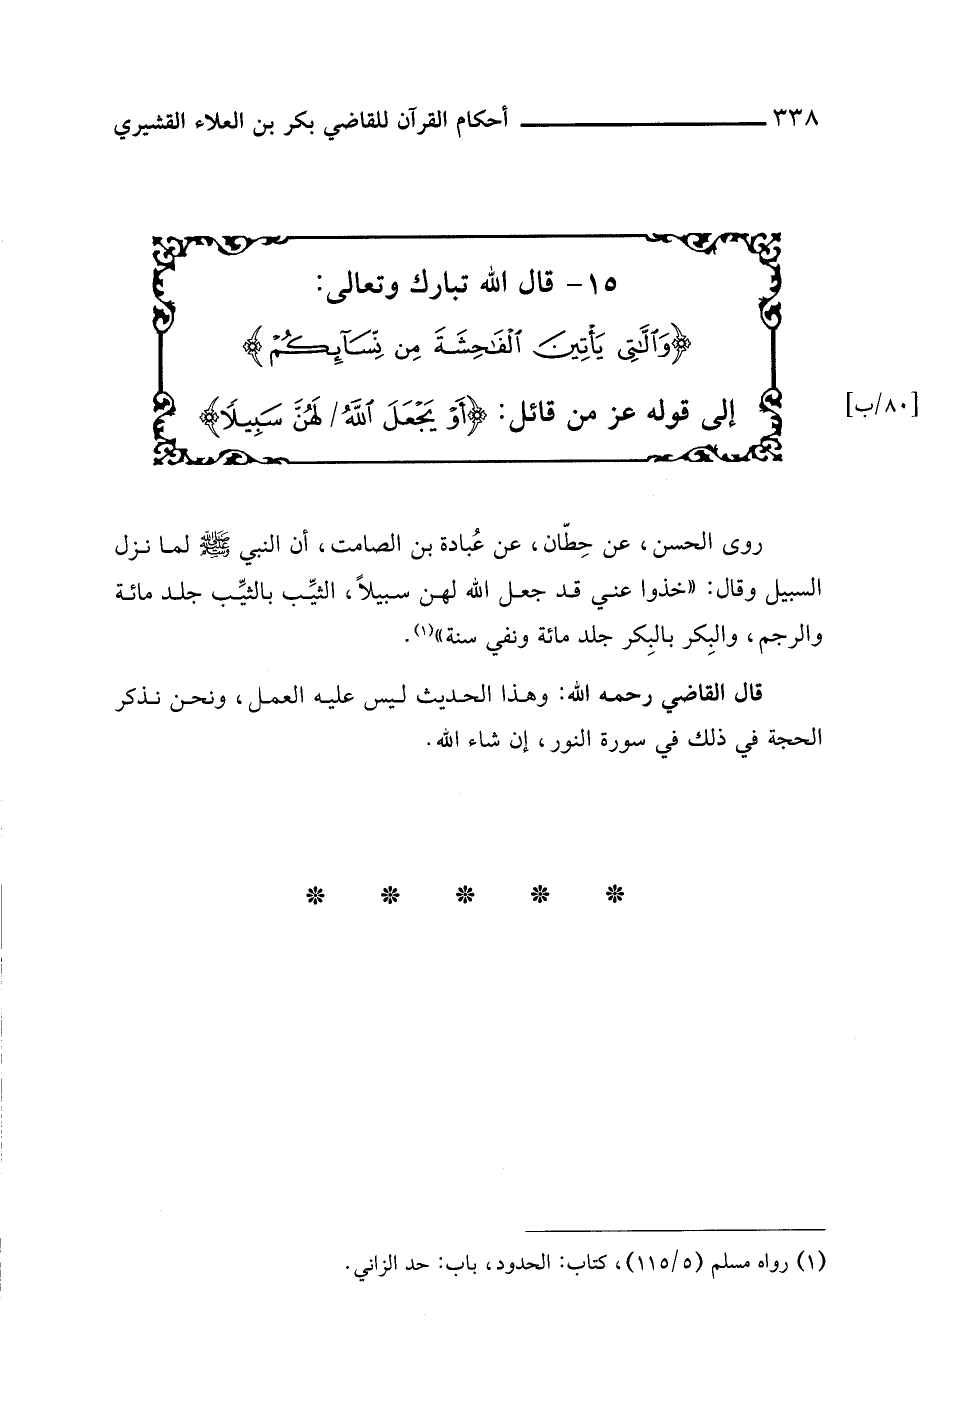 ٣٣٨ أحكام القرآن للقاضي بكر بن العلاء القشيري
١٥- قال الله تبارك وتعالى:
﴿وَٱلَّٰتِى يَأۡتِينَ ٱلۡفَٰحِشَةَ مِن نِّسَآئِكُمۡ﴾
إلى قوله عز من قائل: ﴿أَوۡ يَجۡعَلَ ٱللَّهُ/ لَهُنَّ سَبِيلًا﴾
[٨٠/ب]
روى الحسن، عن حِطّان، عن عُبادة بن الصامت، أن النبي ﷺ لما نزل
السبيل وقال: «خذوا عني قد جعل الله لهن سبيلاً، الثيِّب بالثيِّب جلد مائة
والرجم، والبِكر بالبِكر جلد مائة ونفي سنة»(١).
قال القاضي رحمه الله: وهذا الحديث ليس عليه العمل، ونحن نذكر
الحجة في ذلك في سورة النور، إن شاء الله.
(١) رواه مسلم (١١٥/٥)، كتاب: الحدود، باب: حد الزاني.